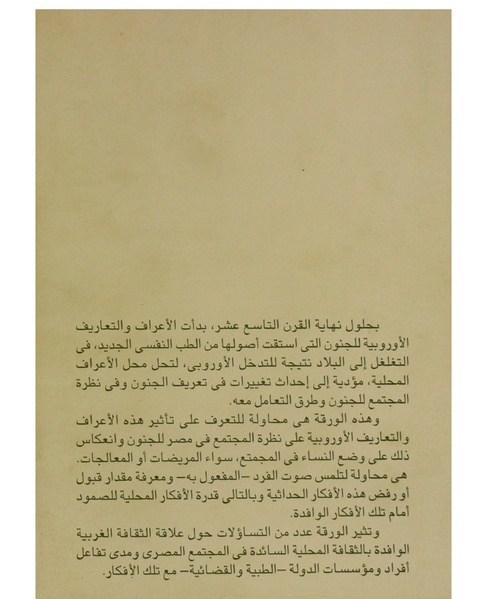 بحلول نهاية القرن التاسع عشر، بدأت الأعراف والتعاريف
الأوروبية للجنون التى استقت أصولها من الطب النفسى الجديد، فى
التغلغل إلى البلاد نتيجة للتدخل الأوروبى، لتحل محل الأعراف
المحلية، مؤدية إلى إحداث تغييرات فى تعريف الجنون وفى نظرة
المجتمع للجنون وطرق التعامل معه.
وهذه الورقة هى محاولة للتعرف على تأثير هذه الأعراف
والتعاريف الأوروبية على نظرة المجتمع فى مصر للجنون وانعكاس
ذلك على وضع النساء فى المجمتع، سواء المريضات أو المعالجات.
هى محاولة لتلمس صوت الفرد –المفعول به– ومعرفة مقدار قبول
أو رفض هذه الأفكار الحداثية وبالتالى قدرة الأفكار المحلية للصمود
أمام تلك الأفكار الوافدة.
وتثير الورقة عدد من التساؤلات حول علاقة الثقافة الغربية
الوافدة بالثقافة المحلية السائدة فى المجتمع المصرى ومدى تفاعل
أفراد ومؤسسات الدولة –الطبية والقضائية– مع تلك الأفكار.